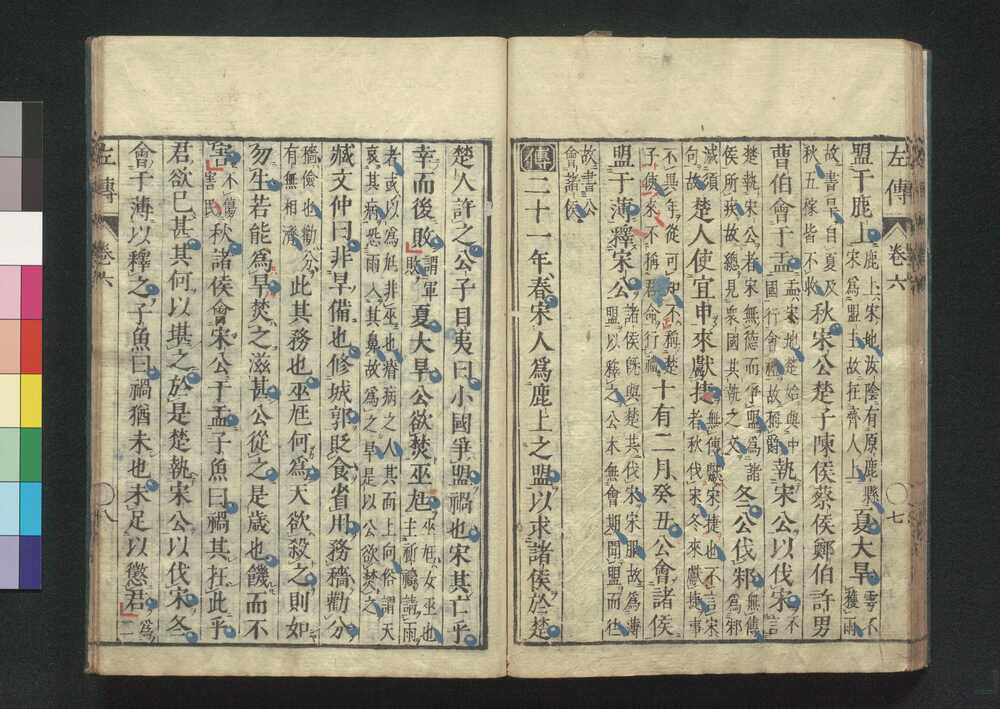 左傳 卷六 七
盟于鹿上鹿上宋地汝陰有原鹿縣宋爲盟主故在齊人上夏大旱雩不獲雨
故書旱自夏及秋五稼皆不收秋宋公楚子陳侯蔡侯鄭伯許男
曹伯會于盂盂宋地楚始與中國行會禮故稱爵執宋公以伐宋不言
楚執宋公者宋無德而爭盟爲諸侯所疾故總見衆國共執之文冬公伐邾無傳爲邾
滅須句故楚人使宜申來獻捷無傳獻宋捷也不言宋者秋伐宋冬來獻捷事
不異年從可知不稱楚子使來不稱君命行禮十有二月癸丑公會諸侯
盟于薄釋宋公諸侯既與楚共伐宋宋服故爲薄盟以釋之公本無會期聞盟而往
故書公會諸侯
傳二十一年春宋人爲鹿上之盟以求諸侯於楚
楚人許之公子目夷曰小國爭盟禍也宋其亡乎
幸而後敗謂軍敗夏大旱公欲焚巫尫巫尫女巫也主祈禱請雨
者或以爲尫非巫也瘠病之人其面上向俗謂天哀其病恐雨入其鼻故爲之旱是以公欲焚之
臧文仲曰非旱備也修城郭貶食省用務穡勸分
穡儉也勸分有無相濟此其務也巫尫何爲天欲殺之則如
勿生若能爲旱焚之滋甚公從之是歲也饑而不
害不傷害民秋諸侯會宋公于盂子魚曰禍其在此乎
君欲已甚其何以堪之於是楚執宋公以伐宋冬
會于薄以釋之子魚曰禍猶未也未足以懲君爲二
左傳 卷六 八